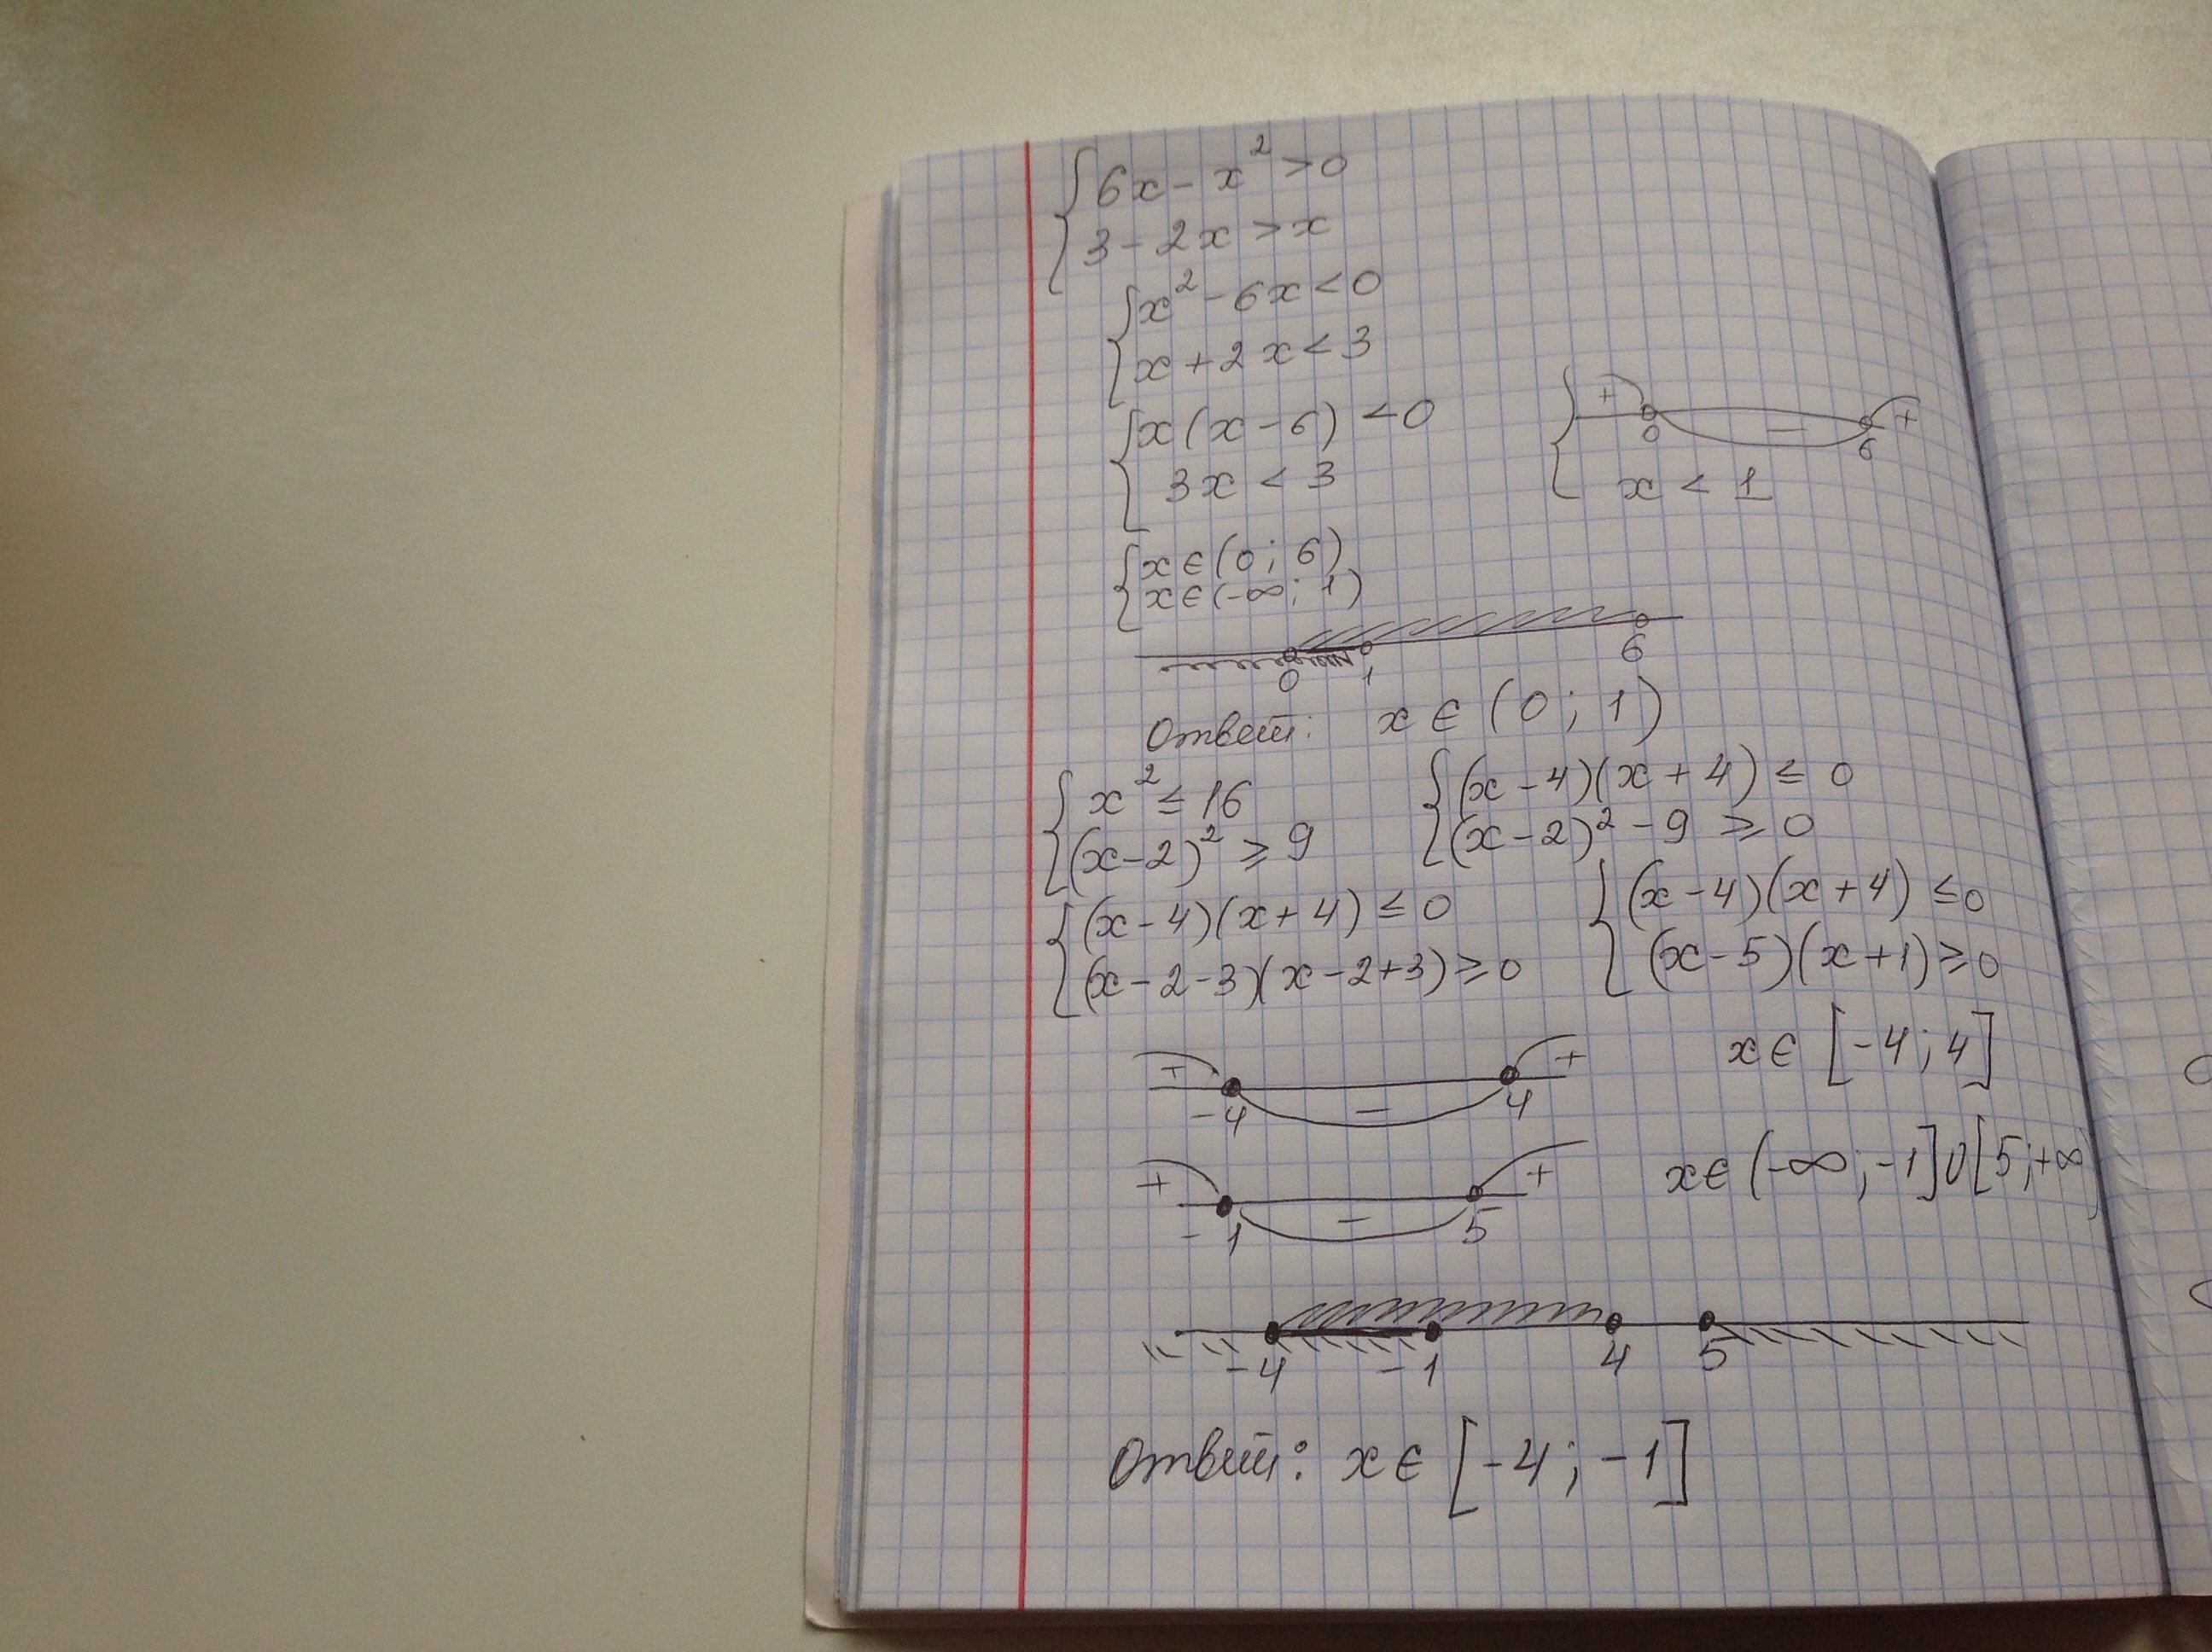 {6x - x² > 0
3 - 2x > x
{x² - 6x < 0
x + 2x < 3
{x(x - 6) < 0
3x < 3
{+ 0 - 6 +
x < 1
{x ∈ (0; 6)
x ∈ (-∞; 1)
0 1 6
Ответ: x ∈ (0; 1)
{x² ≤ 16
(x-2)² ≥ 9
{(x-4)(x+4) ≤ 0
(x-2)² - 9 ≥ 0
{(x-4)(x+4) ≤ 0
(x-2-3)(x-2+3) ≥ 0
{(x-4)(x+4) ≤ 0
(x-5)(x+1) ≥ 0
+ -4 - 4 +
x ∈ [-4; 4]
+ -1 - 5 +
x ∈ (-∞; -1] ∪ [5; +∞)
-4 -1 4 5
Ответ: x ∈ [-4; -1]